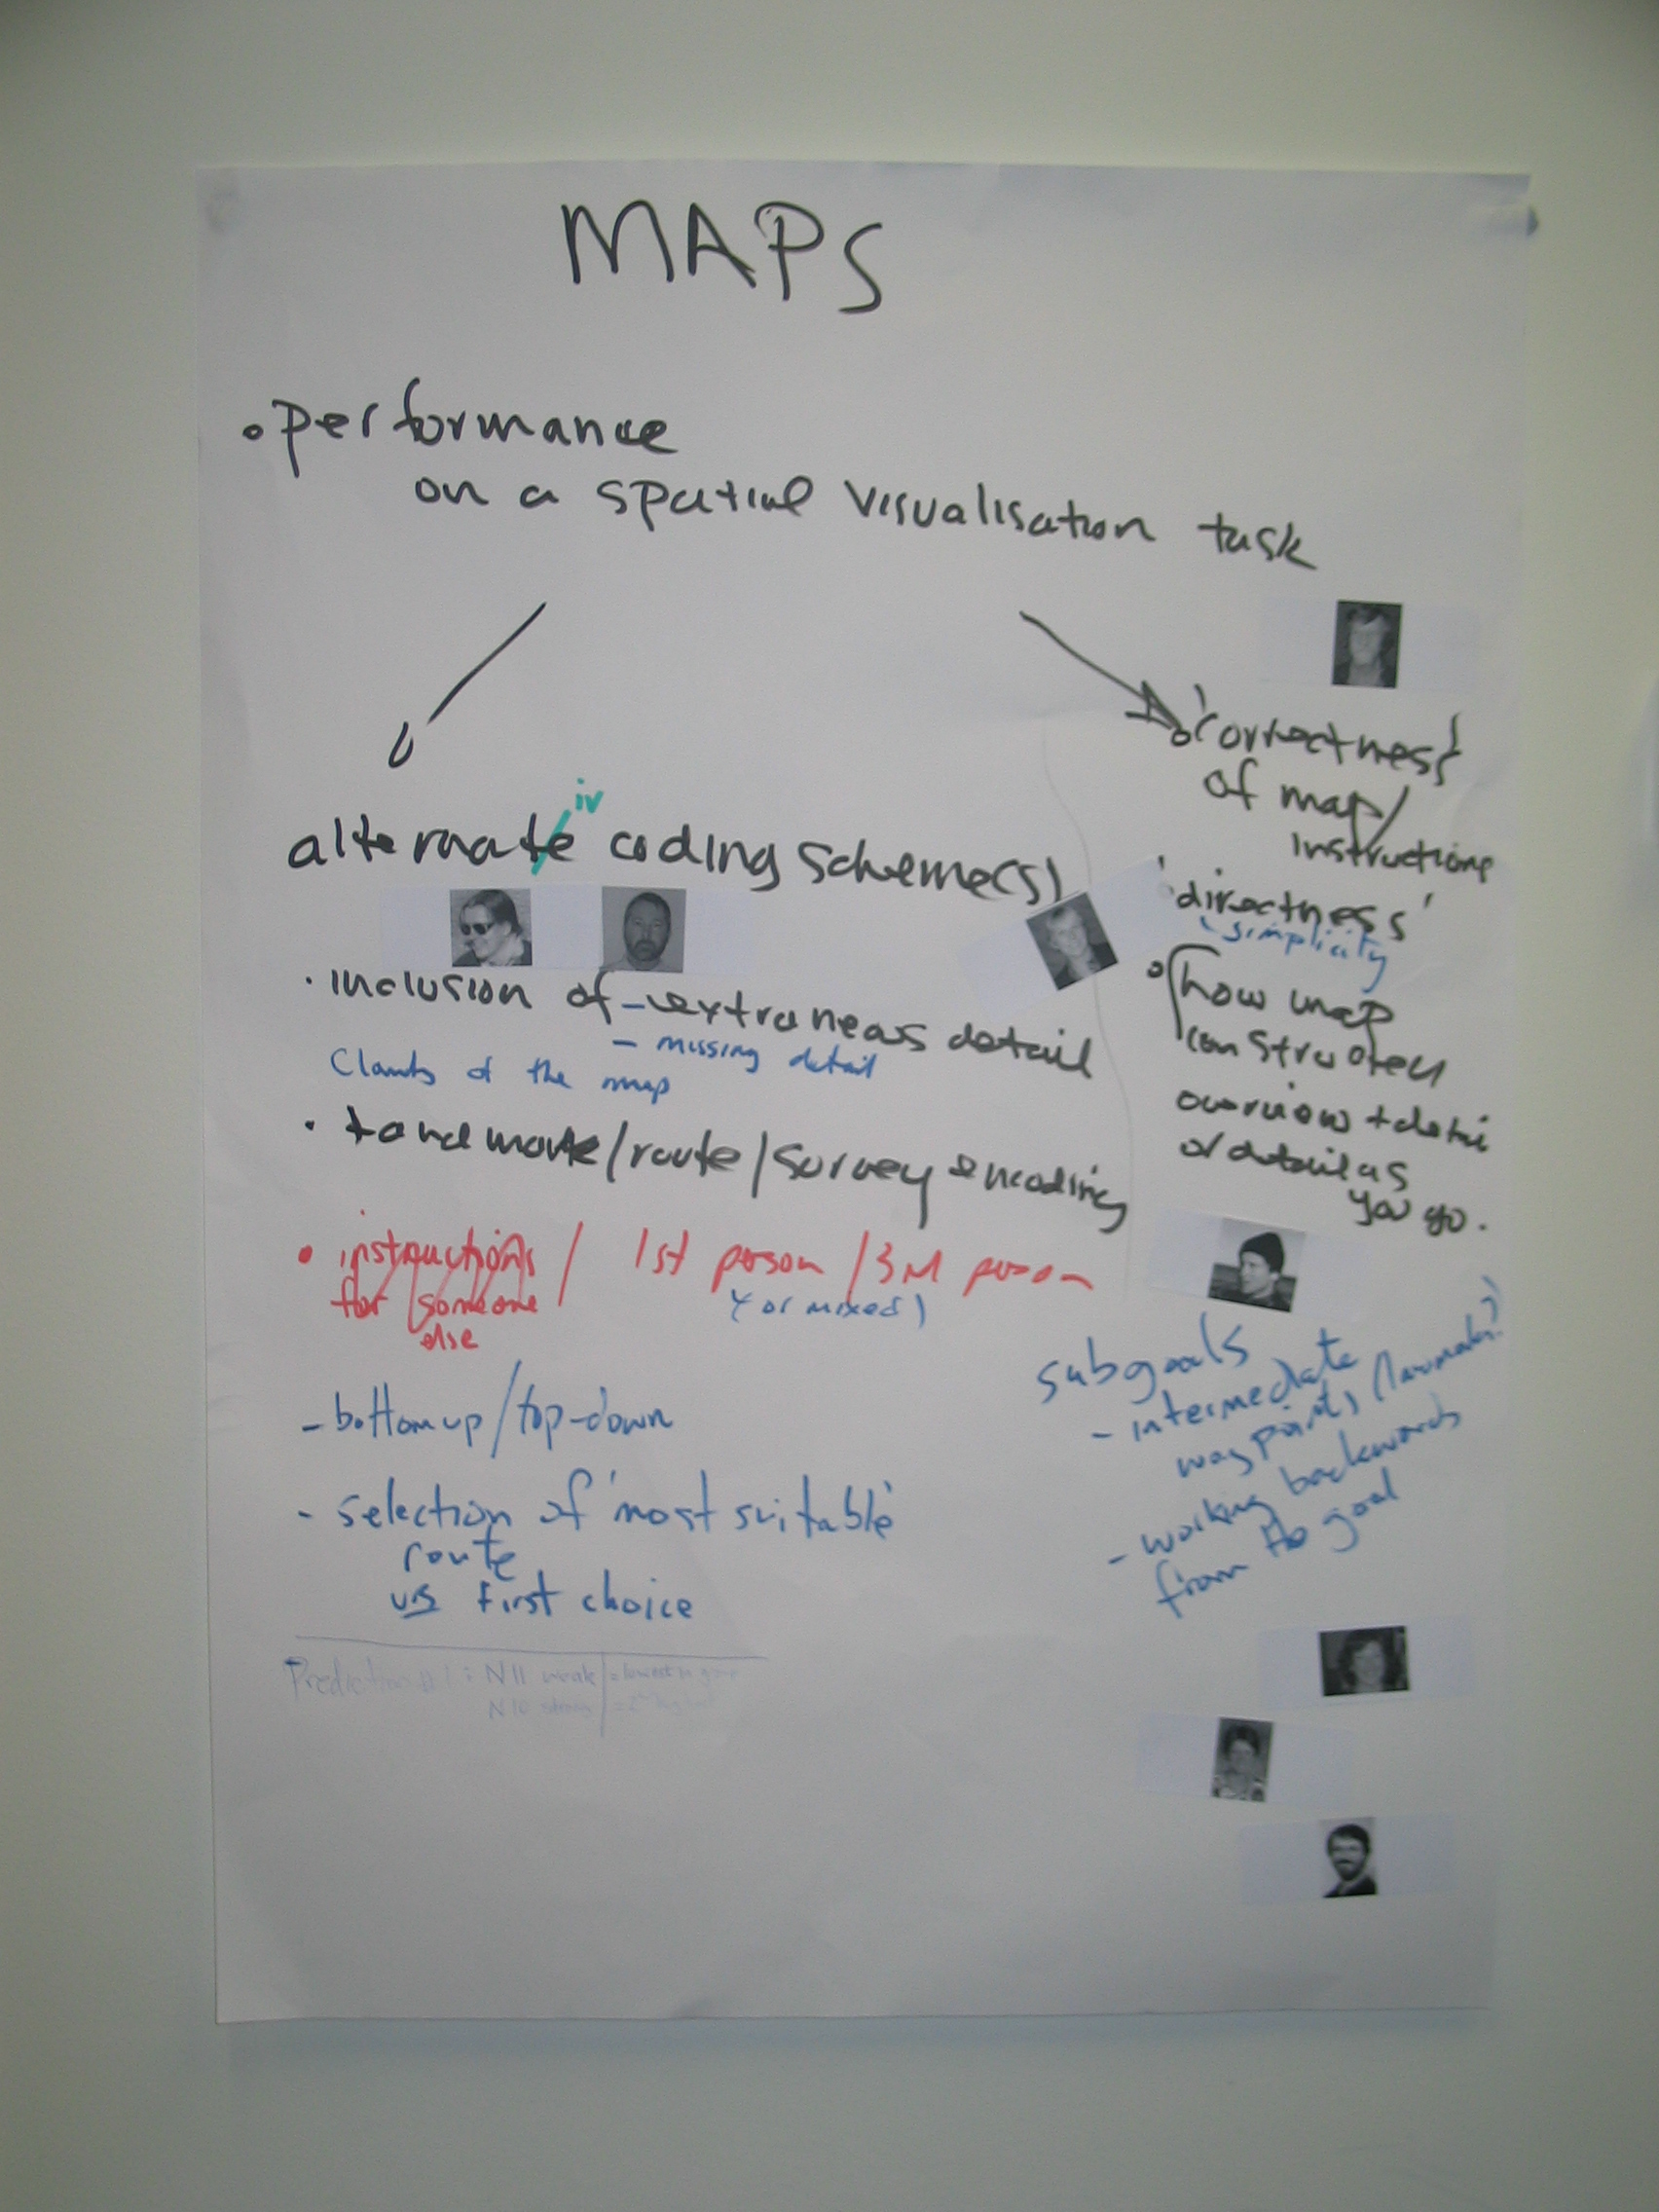 MAPS
• performance
on a spatial visualisation task
alternate coding scheme(s)
iv
• inclusion of - extraneous detail
- missing detail
of the map
• landmark/route/survey encoding
• instructions / 1st person / 3rd person
for someone
(or mixed)
else
- bottom up/top-down
- selection of 'most suitable'
route
vs first choice
Prediction #1: N11 weak = lowest in group
'correctness'
of map/
instructions
'directness'
- simplicity
how map
constructed
overview + detail
or detail as
you go.
subgoals
- intermediate
waypoints (landmarks?)
- working backwards
from the goal